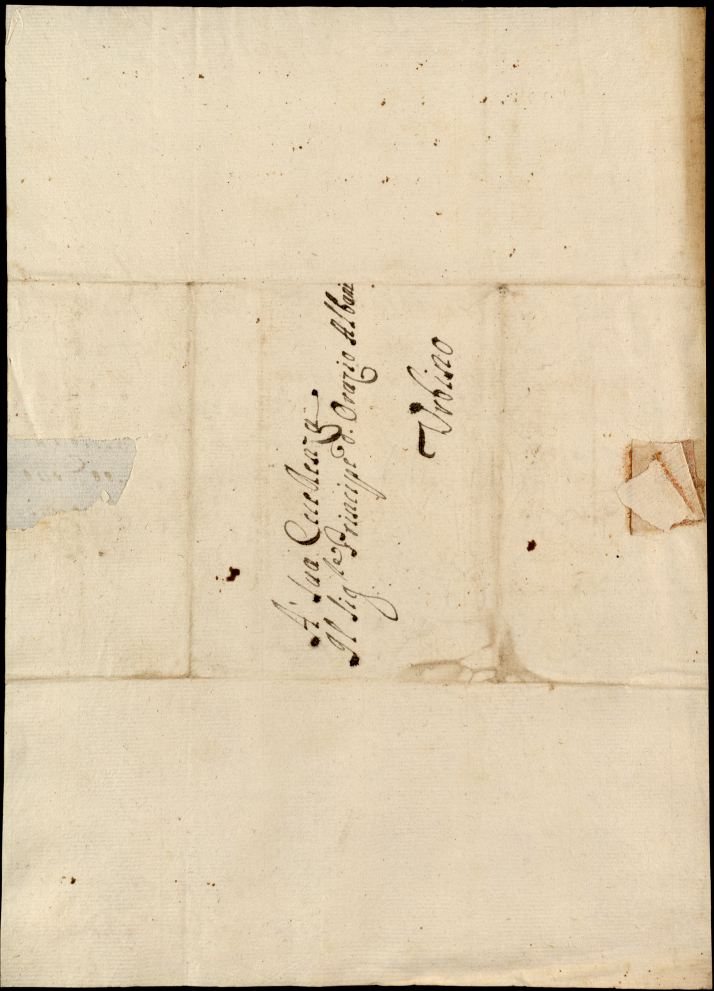 A Sua Eccellenza
Il Sig.re Principe D. Orazio Albani
Urbino